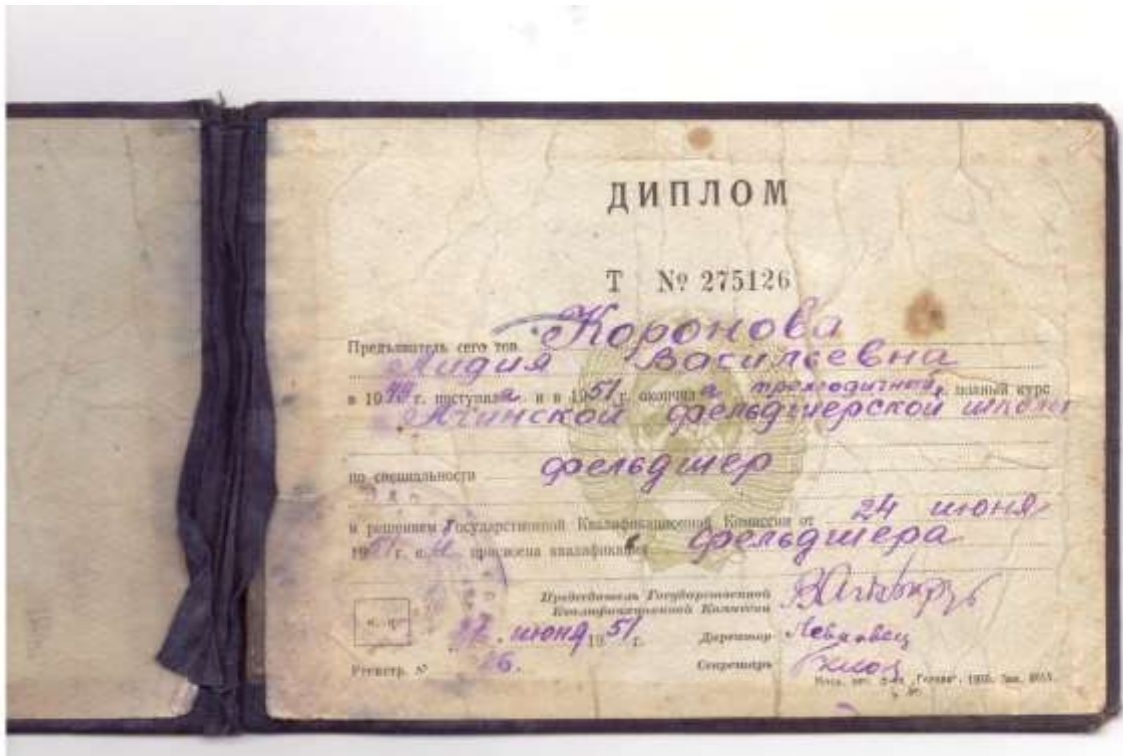 ДИПЛОМ
Т № 275126
Предъявитель сего тов. Коронова
Лидия Васильевна
в 19 г. поступила и в 1951 г. окончила трехгодичный полный курс
Ачинской фельдшерской школы
по специальности фельдшер
и решением Государственной Квалификационной Комиссии от 24 июня
1951 г. ей присвоена квалификация фельдшера
Председатель Государственной
Квалификационной Комиссии
27 июня 1951 г. Директор
Регистр. № 26. Секретарь